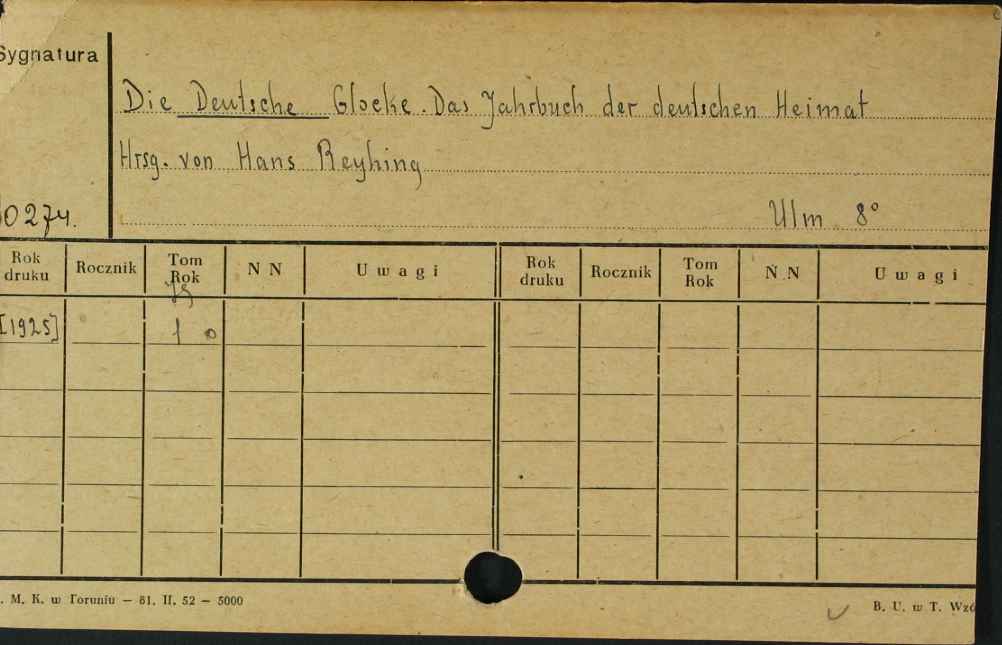 Sygnatura
Die Deutsche Glocke. Das Jahrbuch der deutschen Heimat
Hrsg. von Hans Reyhing
0274.
Ulm 8°
Rok druku Rocznik Tom Rok N N Uwagi Rok druku Rocznik Tom Rok N N Uwagi
Jg
[1925] 1
. M. K. w Toruniu — 61. II. 52 — 5000
B. U. w T. Wzó